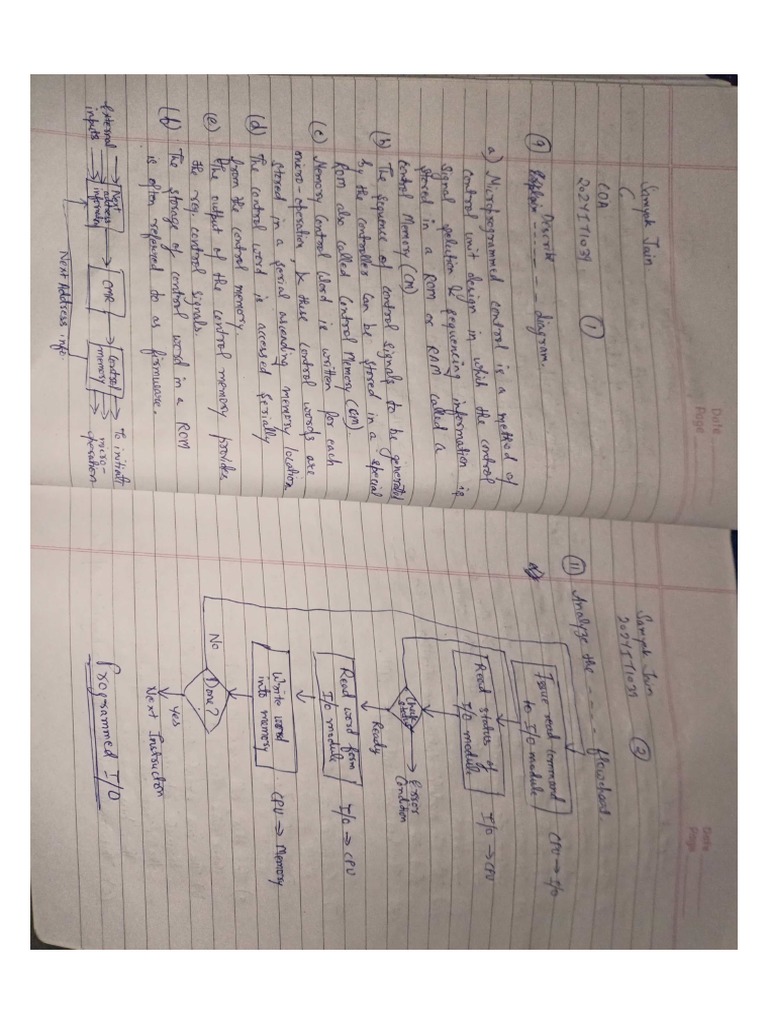 Date
Page
Samyak Jain
C
COA
2024IT1039
①
⑨ Explain Describe ------ diagram.
a) Microprogrammed control is a method of
control unit design in which the control
signal selection & sequencing information is
stored in a ROM or RAM called a
control Memory (CM)
(b) The sequence of control signals to be generated
by the controller can be stored in a special
ROM also called Control Memory (CM).
(c) Memory Control Word is written for each
micro-operation, & these control words are
stored in a serial ascending memory location
(d) The control word is accessed serially
from the control memory.
(e) The output of the control memory provides
the req. control signals.
(f) The storage of control word in a ROM
is often referred to as firmware.
External
inputs
Next
address
information
CMR
Control
memory
To initiate
micro-
operation
Next Address info.
Date
Page
Samyak Jain
2024IT1039
②
⑪ Analyze the ----- flowchart
a)
Issue read command
to I/O module
CPU → I/O
Read status of
I/O module
I/O → CPU
Check
status
Error
Condition
Ready
Read word form
I/O module
I/O → CPU
Write word
into memory
CPU → Memory
Done?
No
Yes
Next Instruction
Programmed I/O